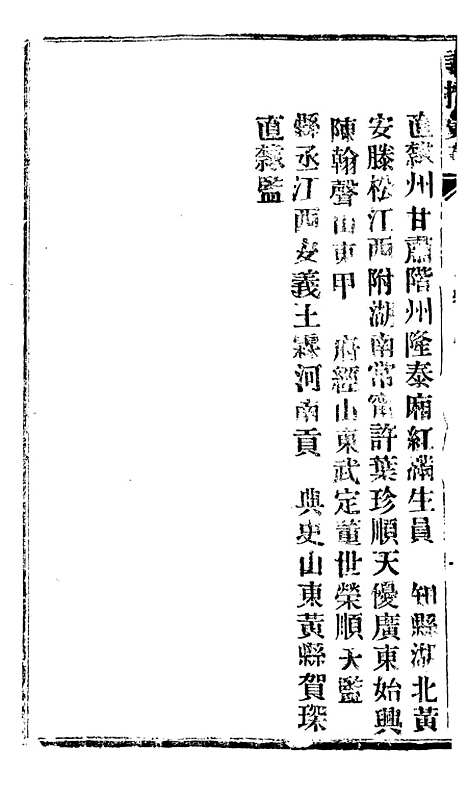 直隸州甘肅階州隆泰廂紅滿生員　知縣湖北黃
安滕松江西附湖南常甯許葉珍順天優廣東始興
陳翰聲山東甲　府經山東武定董世榮順天監
縣丞江西安義王霖河南貢　典史山東黃縣賀琛
直隸監